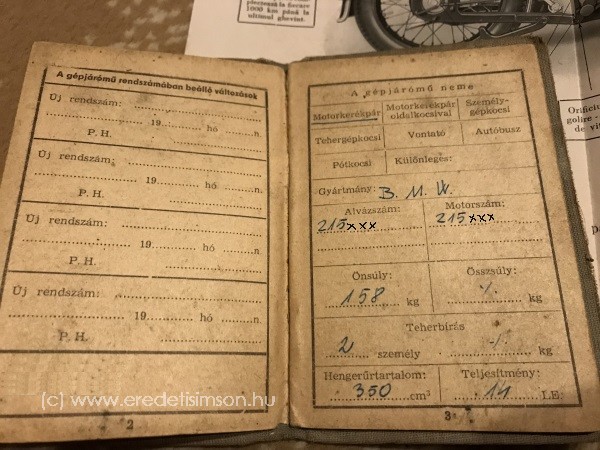 plectesk la fiecare
1000 km până la
ultimul ghevint.
A gépjármű rendszámában beálló változások
Új rendszám:
19 hó n.
P. H.
Új rendszám:
19 hó n.
P. H.
Új rendszám:
19 hó n.
P. H.
Új rendszám:
19 hó n.
P. H.
2
A gépjármű neme
Motorkerékpár Motorkerékpár oldalkocsival Személygépkocsi
Tehergépkocsi Vontató Autóbusz
Pótkocsi Különleges:
Gyártmány: B. M. W.
Alvázszám: Motorszám:
215xxx 215xxx
Önsúly: Összsúly:
158 kg ./. kg
Teherbírás
2 személy -/- kg
Hengerűrtartalom: Teljesítmény:
350 cm³ 14 LE.
3
Orificiu
golire -
de vi
(c) www.eredetisimson.hu